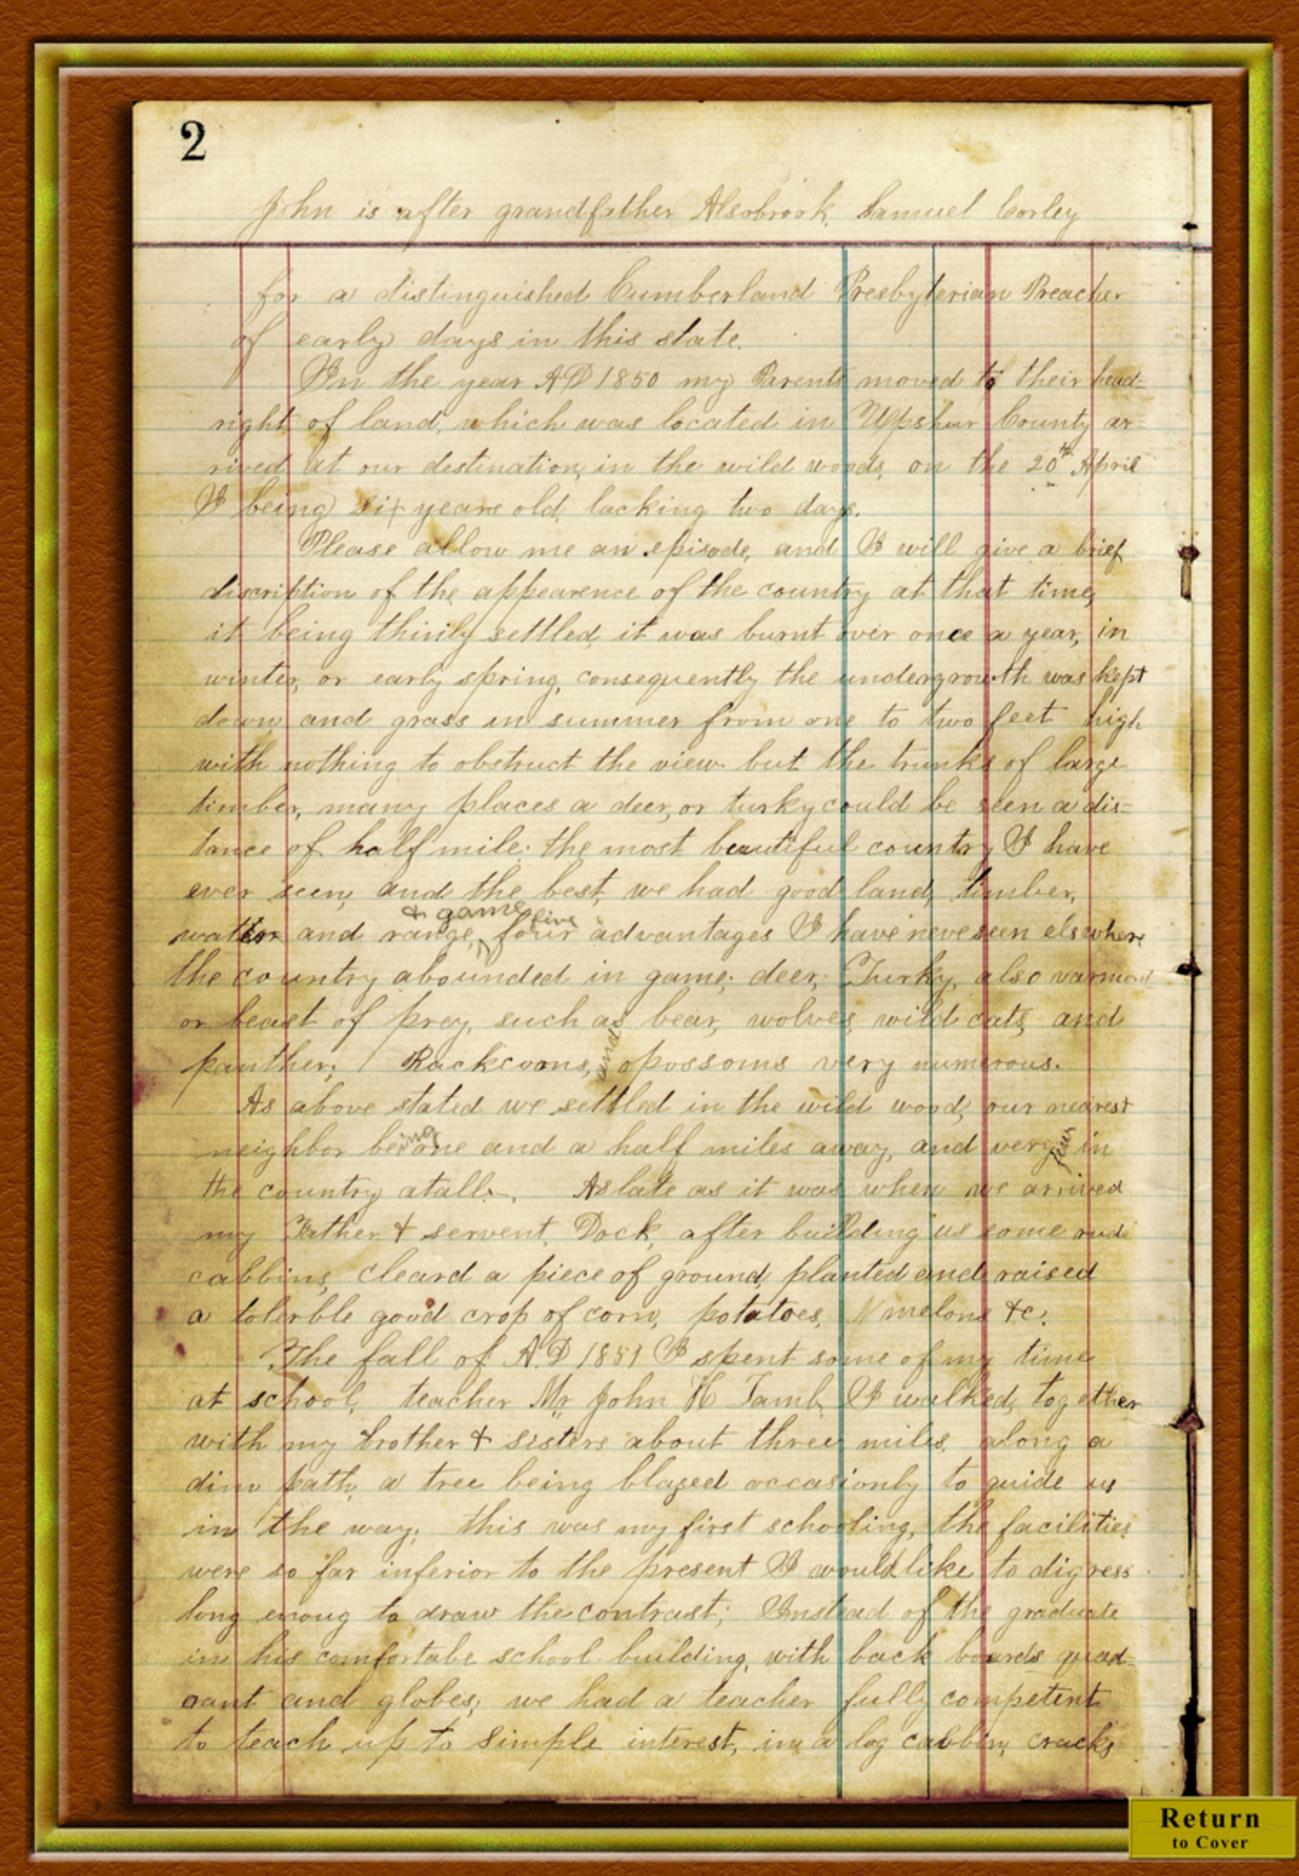 2
John is after grandfather Alsobrook, Samuel Corley
for a distinguished Cumberland Presbyterian Preacher
of early days in this state.
In the year AD 1850 my Parents moved to their head-
right of land, which was located in Upshur County ar-
rived at our destination, in the wild woods, on the 20th April
I being six years old, lacking two days.
Please allow me an episode, and I will give a brief
discription of the appearence of the country at that time,
it being thinly settled, it was burnt over once a year, in
winter, or early spring, consequently the undergrowth was kept
down, and grass in summer from one to two feet high
with nothing to obstruct the view but the trunks of large
timber, many places a deer, or turky could be seen a dis-
tance of half mile; the most beautiful country I have
ever seen, and the best, we had good land, timber,
& game five
water and range, four advantages I have neve seen elswhere
the country abounded in game; deer, Turky, also varmont
or beast of prey, such as bear, wolves, wild cats, and
panther; Rackcoons, and opossoms very numerous.
As above stated we settled in the wild wood, our nearest
neighbor being one and a half miles away, and very few in
the country atall. As late as it was when we arrived
my Father & servent, Dock, after building us some rude
cabbins, cleard a piece of ground, planted and raised
a tolerble good crop of corn, potatoes, melons &c.
The fall of A.D 1851 I spent some of my time
at school, teacher Mr John H Lamb, I walked, together
with my brother & sisters about three miles, along a
dim path, a tree being blazed occasionly to guide us
in the way; this was my first schooling, the facilities
were so far inferior to the present I would like to digress
long enoug to draw the contrast; Instead of the graduate
in his comfortabe school building, with back boards quad-
rant and globes; we had a teacher fully competent
to teach up to simple interest, in a log cabbin, cracks
Return
to Cover